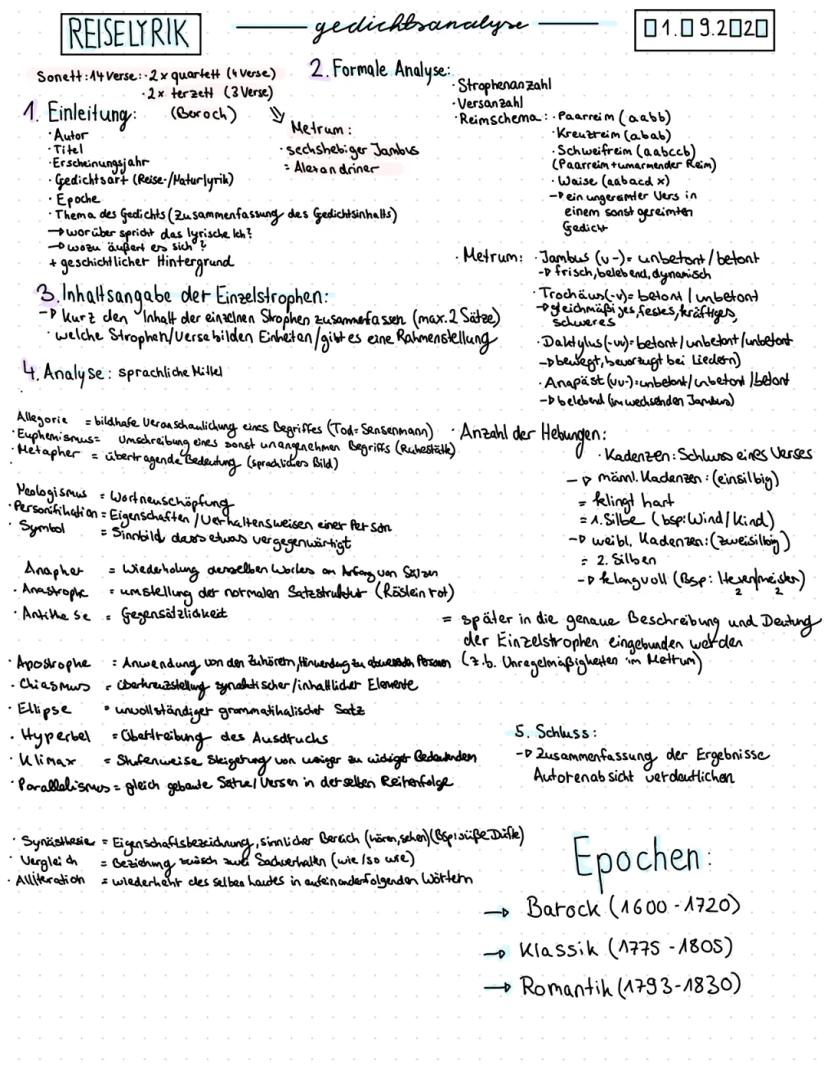 REISELYRIK
gedichtsanalyse
01.09.2020
Sonett: 14 Verse: · 2x quartett (4 Verse)
· 2x terzett (3 Verse)
(Baroch)
Metrum:
· sechshebiger Jambus
= Alexandriner
1. Einleitung:
· Autor
· Titel
· Erscheinungsjahr
· Gedichtsart (Reise-/Naturlyrik)
· Epoche
· Thema des Gedichts (Zusammenfassung des Gedichtsinhalts)
→ worüber spricht das lyrische Ich?
→ wozu äußert es sich?
+ geschichtlicher Hintergrund
2. Formale Analyse:
· Strophenanzahl
· Versanzahl
· Reimschema: · Paarreim (aabb)
· Kreuzreim (abab)
· Schweifreim (aabccb)
(Paarreim + umarmender Reim)
· Waise (aabacd x)
→ ein ungereimter Vers in
einem sonst gereimten
Gedicht
· Metrum: · Jambus (v-) = unbetont/betont
→ frisch, belebend, dynamisch
· Trochäus (-v) = betont/unbetont
→ gleichmäßiges, festes, kräftiges,
schweres
· Daktylus (-vv) = betont/unbetont/unbetont
→ bewegt, bevorzugt bei Liedern)
· Anapäst (vv-) = unbetont/unbetont/betont
→ belebend (im wechselnden Jambus)
· Anzahl der Hebungen:
· Kadenzen: Schluss eines Verses
→ männl. Kadenzen: (einsilbig)
= klingt hart
= 1. Silbe (bsp: Wind/Kind)
→ weibl. Kadenzen: (zweisilbig)
= 2. Silben
→ klangvoll (Bsp: Hexen/meister)
2 2
= später in die genaue Beschreibung und Deutung
der Einzelstrophen eingebunden werden
(z.b. Unregelmäßigkeiten im Mettrum)
3. Inhaltsangabe der Einzelstrophen:
→ kurz den Inhalt der einzelnen Strophen zusammefassen (max. 2 Sätze)
· welche Strophen/Verse bilden Einheiten/gibt es eine Rahmenstellung
4. Analyse: sprachliche Mittel
Allegorie = bildhafe Veranschaulichung eines Begriffes (Tod = Sensenmann)
· Euphemismus = Umschreibung eines sonst unangenehmen Begriffs (Ruhestätte)
· Metapher = übertragende Bedeutung (sprachliches Bild)
Neologismus = Wortneuschöpfung
· Personifikation = Eigenschaften/Verhaltensweisen einer Person
· Symbol = Sinnbild dass etwas vergegenwärtigt
Anapher = Wiederholung desselben Wortes am Anfang von Sätzen
· Anastrophe = umstellung der normalen Satzstruktur (Röslein rot)
· Antithese = Gegensätzlichkeit
· Apostrophe = Anwendung von den Zuhörern, Hinwendung zu abwesenden Personen
· Chiasmus = überkreuzstellung synaktischer/inhaltlicher Elemente
· Ellipse = unvollständiger grammatikalischer Satz
· Hyperbel = Übertreibung des Ausdrucks
· Klimax = Stufenweise Steigerung von weniger zu
· Parallelismus = gleich gebaute Sätze/Versen in derselben Reihenfolge
· Synästhesie = Eigenschaftsbezeichnung, sinnlicher Bereich (hören, sehen) (Bsp: süße Düfte)
· Vergleich = Beziehung zwisch zwei Sachverhalten (wie/so wie)
· Alliteration = wiederkehr des selben lautes in aufeinanderfolgenden Wörtern
5. Schluss:
→ Zusammenfassung der Ergebnisse
Autorenabsicht verdeutlichen
Epochen:
→ Barock (1600-1720)
→ Klassik (1775-1805)
→ Romantik (1793-1830)